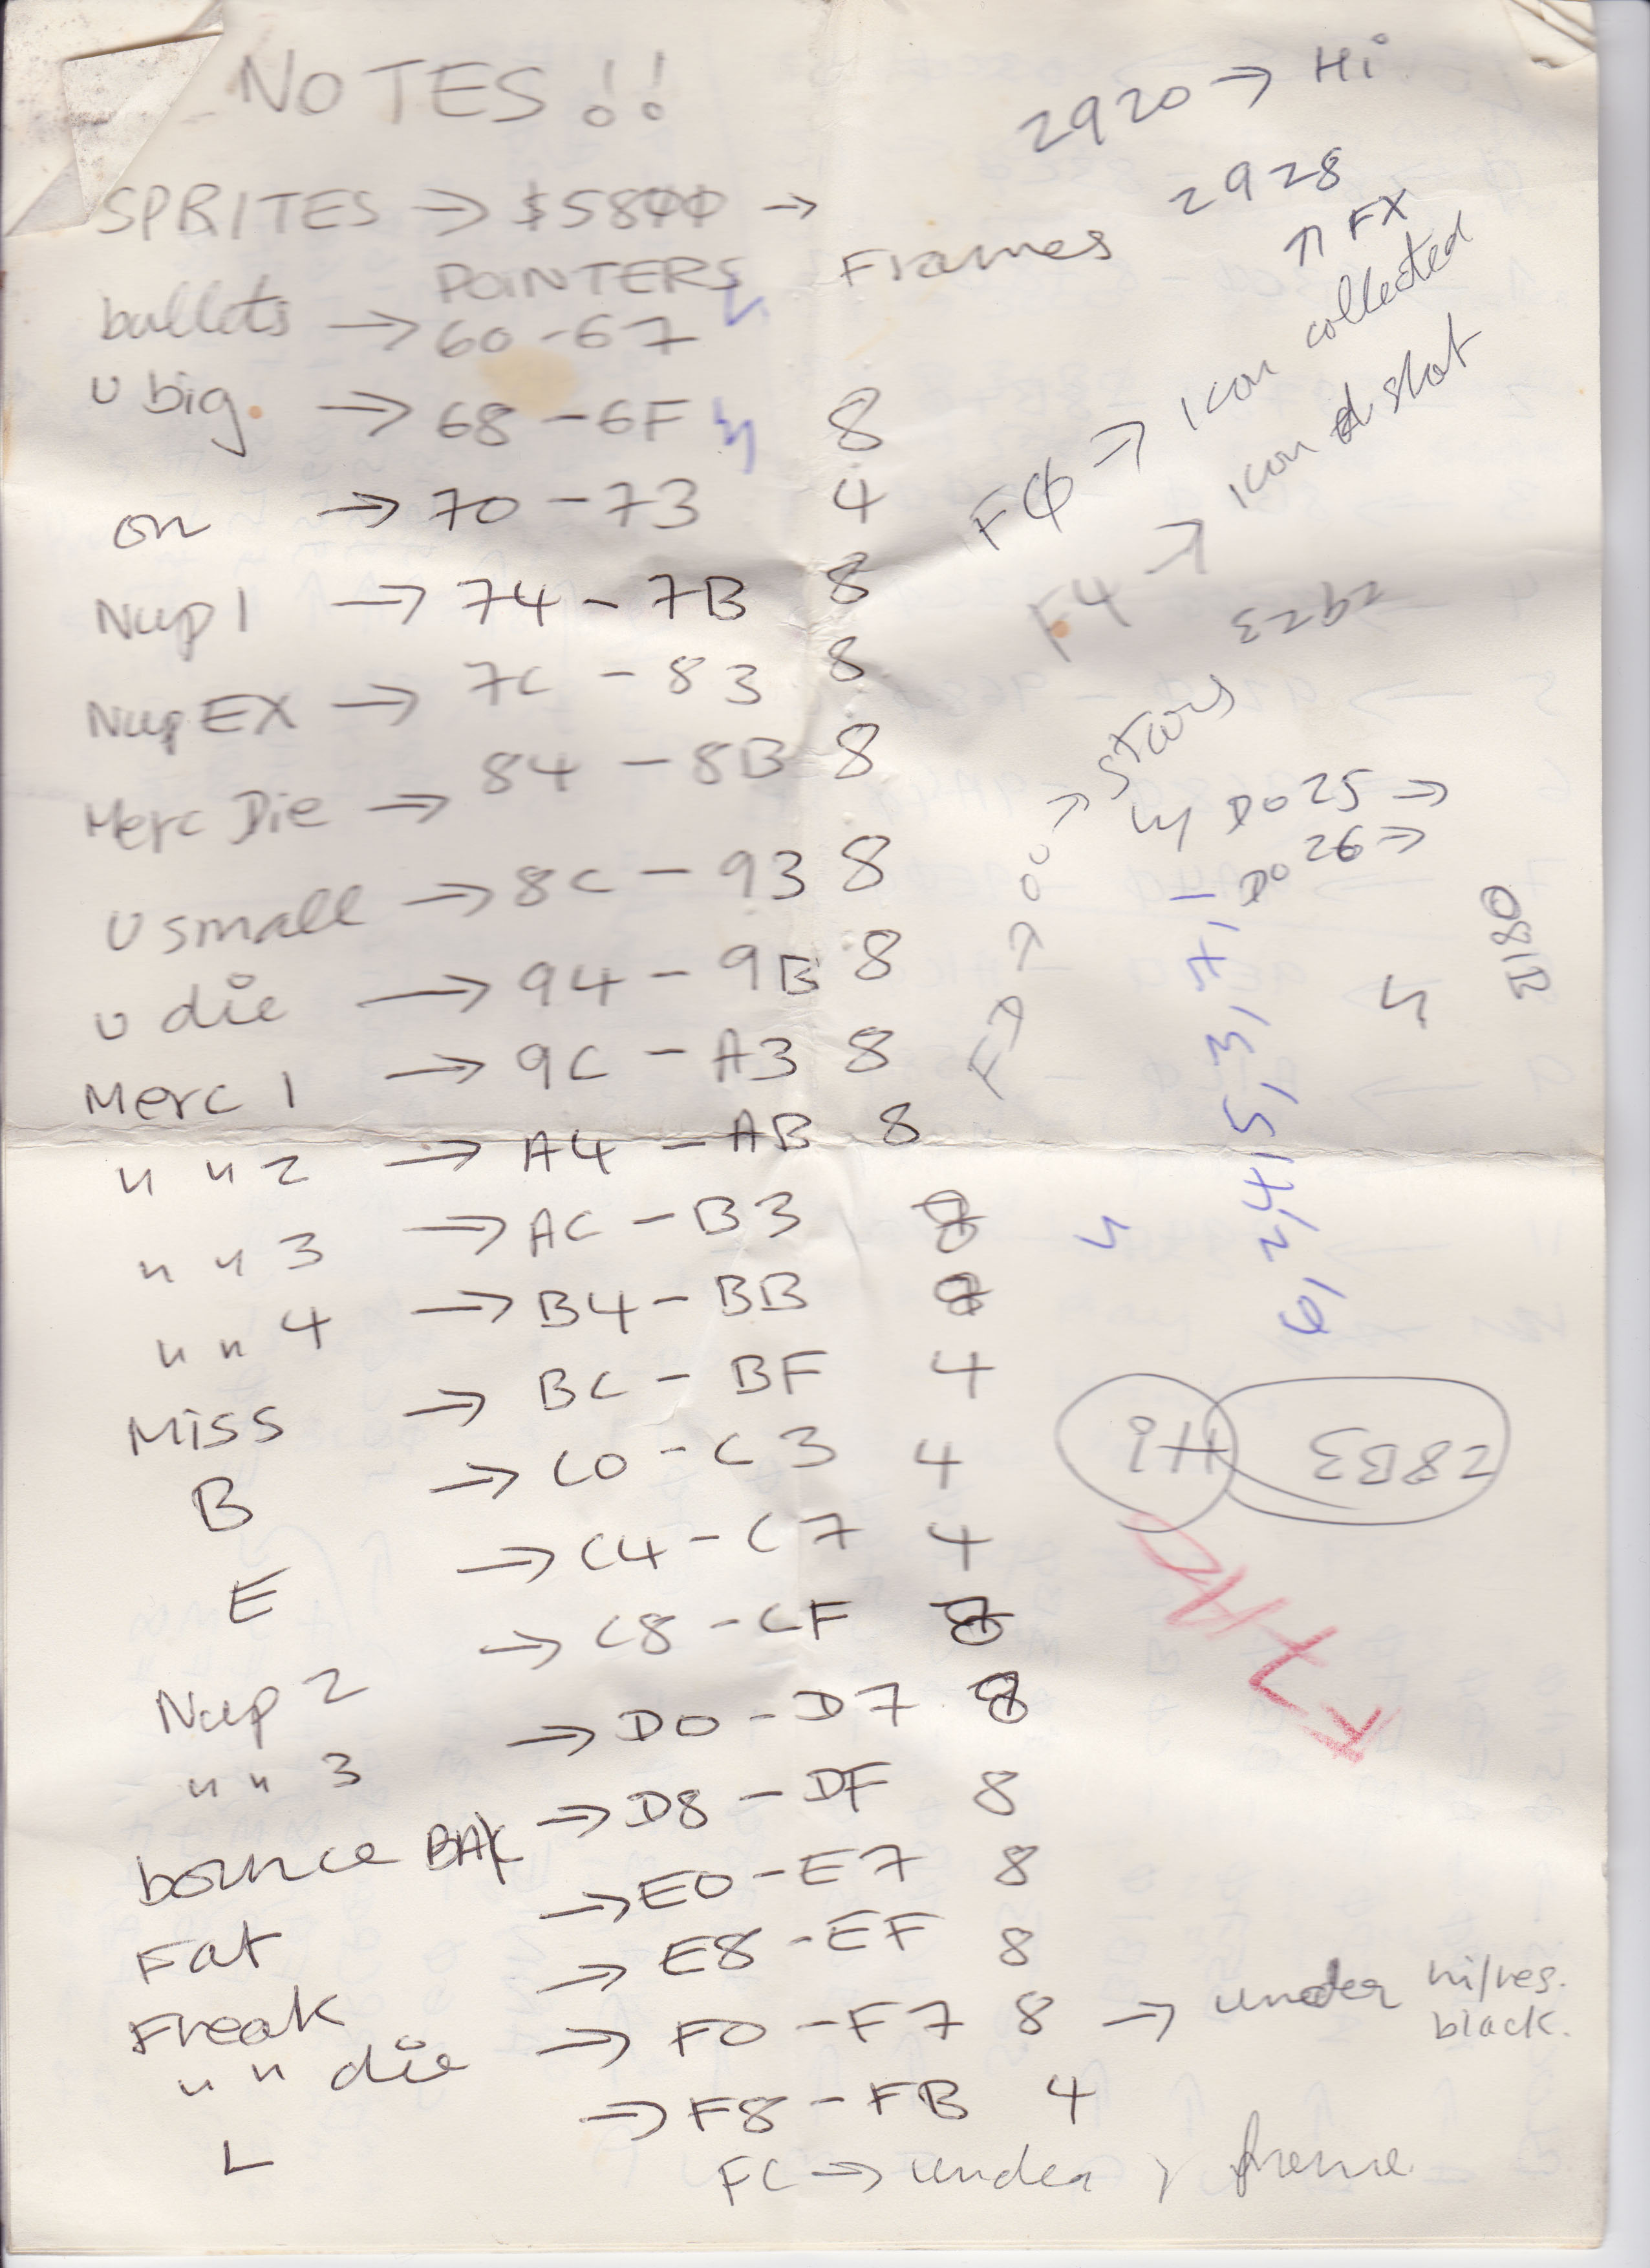 NOTES!!
SPRITES → $5800 →
POINTERS
Frames
bullets → 60-67
U big. → 68-6F 8
on → 70-73 4
Nup 1 → 74-7B 8
Nup EX → 7C-83 8
Merc Die → 84-8B 8
U small → 8C-93 8
U die → 94-9B 8
Merc 1 → 9C-A3 8
" " 2 → A4-AB 8
" " 3 → AC-B3 8
" " 4 → B4-BB 8
Miss → BC-BF 4
B → C0-C3 4
E → C4-C7 4
Nup 2 → C8-CF 8
" " 3 → D0-D7 8
bounce BAK → D8-DF 8
Fat → E0-E7 8
Freak → E8-EF 8
" " die → F0-F7 8 → under hi/res. black.
L → F8-FB 4
FC → under frame
2920 → Hi
2928
↑ FX
→ icon collected
F4 → icon shot
2923
→ 00 → stars
D025 →
D026 →
6, 2, 4, 5, 3, 7, 1
Hi
28B3